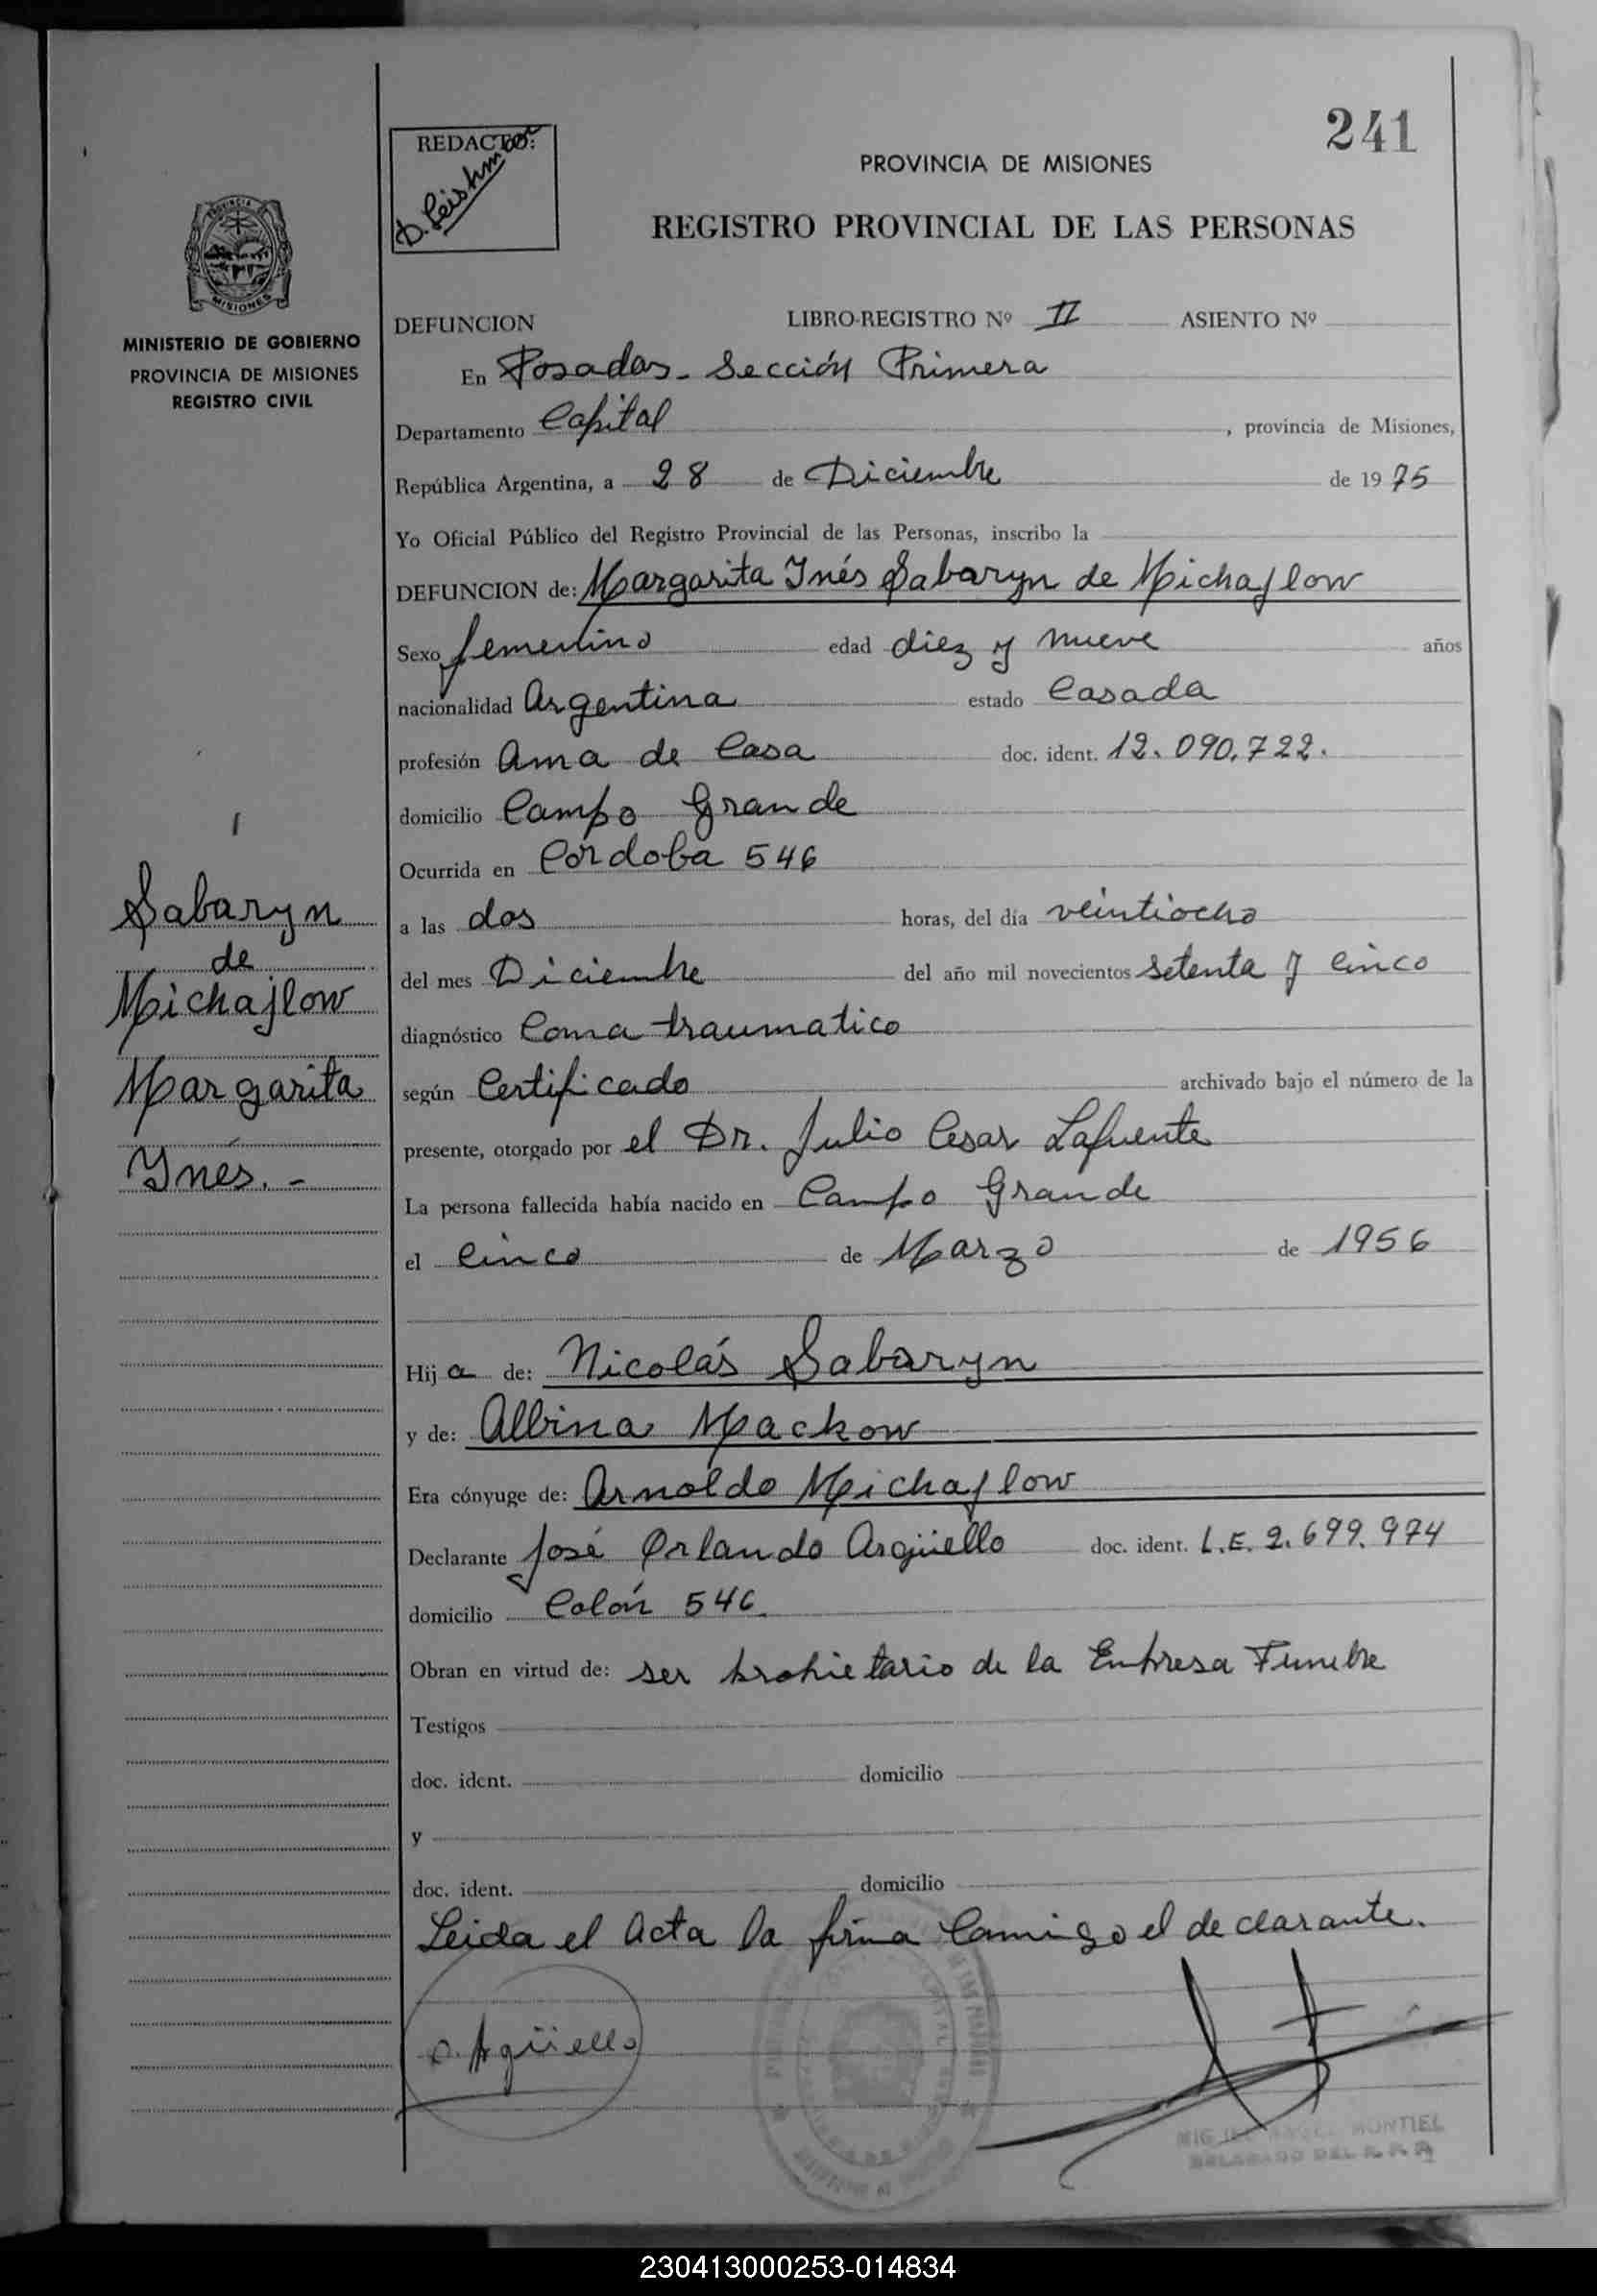 241
REDACTO:
D. Leishman
PROVINCIA DE MISIONES
REGISTRO PROVINCIAL DE LAS PERSONAS
PROVINCIA DE
MISIONES
MINISTERIO DE GOBIERNO
PROVINCIA DE MISIONES
REGISTRO CIVIL
DEFUNCION LIBRO-REGISTRO Nº II ASIENTO Nº
En Posadas - Sección Primera
Departamento Capital, provincia de Misiones,
República Argentina, a 28 de Diciembre de 1975
Yo Oficial Público del Registro Provincial de las Personas, inscribo la
DEFUNCION de: Margarita Inés Sabaryn de Michajlow
Sexo femenino edad diez y nueve años
nacionalidad Argentina estado Casada
profesión Ama de Casa doc. ident. 12.090.722.
domicilio Campo Grande
Ocurrida en Córdoba 546
a las dos horas, del día veintiocho
del mes Diciembre del año mil novecientos setenta y cinco
diagnóstico Coma traumatico
según Certificado archivado bajo el número de la
presente, otorgado por el Dr. Julio Cesar Lafuente
La persona fallecida había nacido en Campo Grande
el cinco de Marzo de 1956
Hija de: Nicolás Sabaryn
y de: Albina Mackow
Era cónyuge de: Arnoldo Michajlow
Declarante José Orlando Argüello doc. ident. L.E. 2.699.974
domicilio Colón 546.
Obran en virtud de: ser propietario de la Empresa Funebre
Testigos
doc. ident. domicilio
y
doc. ident. domicilio
Leida el Acta la firma Comigo el declarante.
O. Agüello
MIGUEL ANGEL MONTIEL
DELEGADO DEL R. P. P.
Sabaryn
de
Michajlow
Margarita
Ynés. -
230413000253-014834